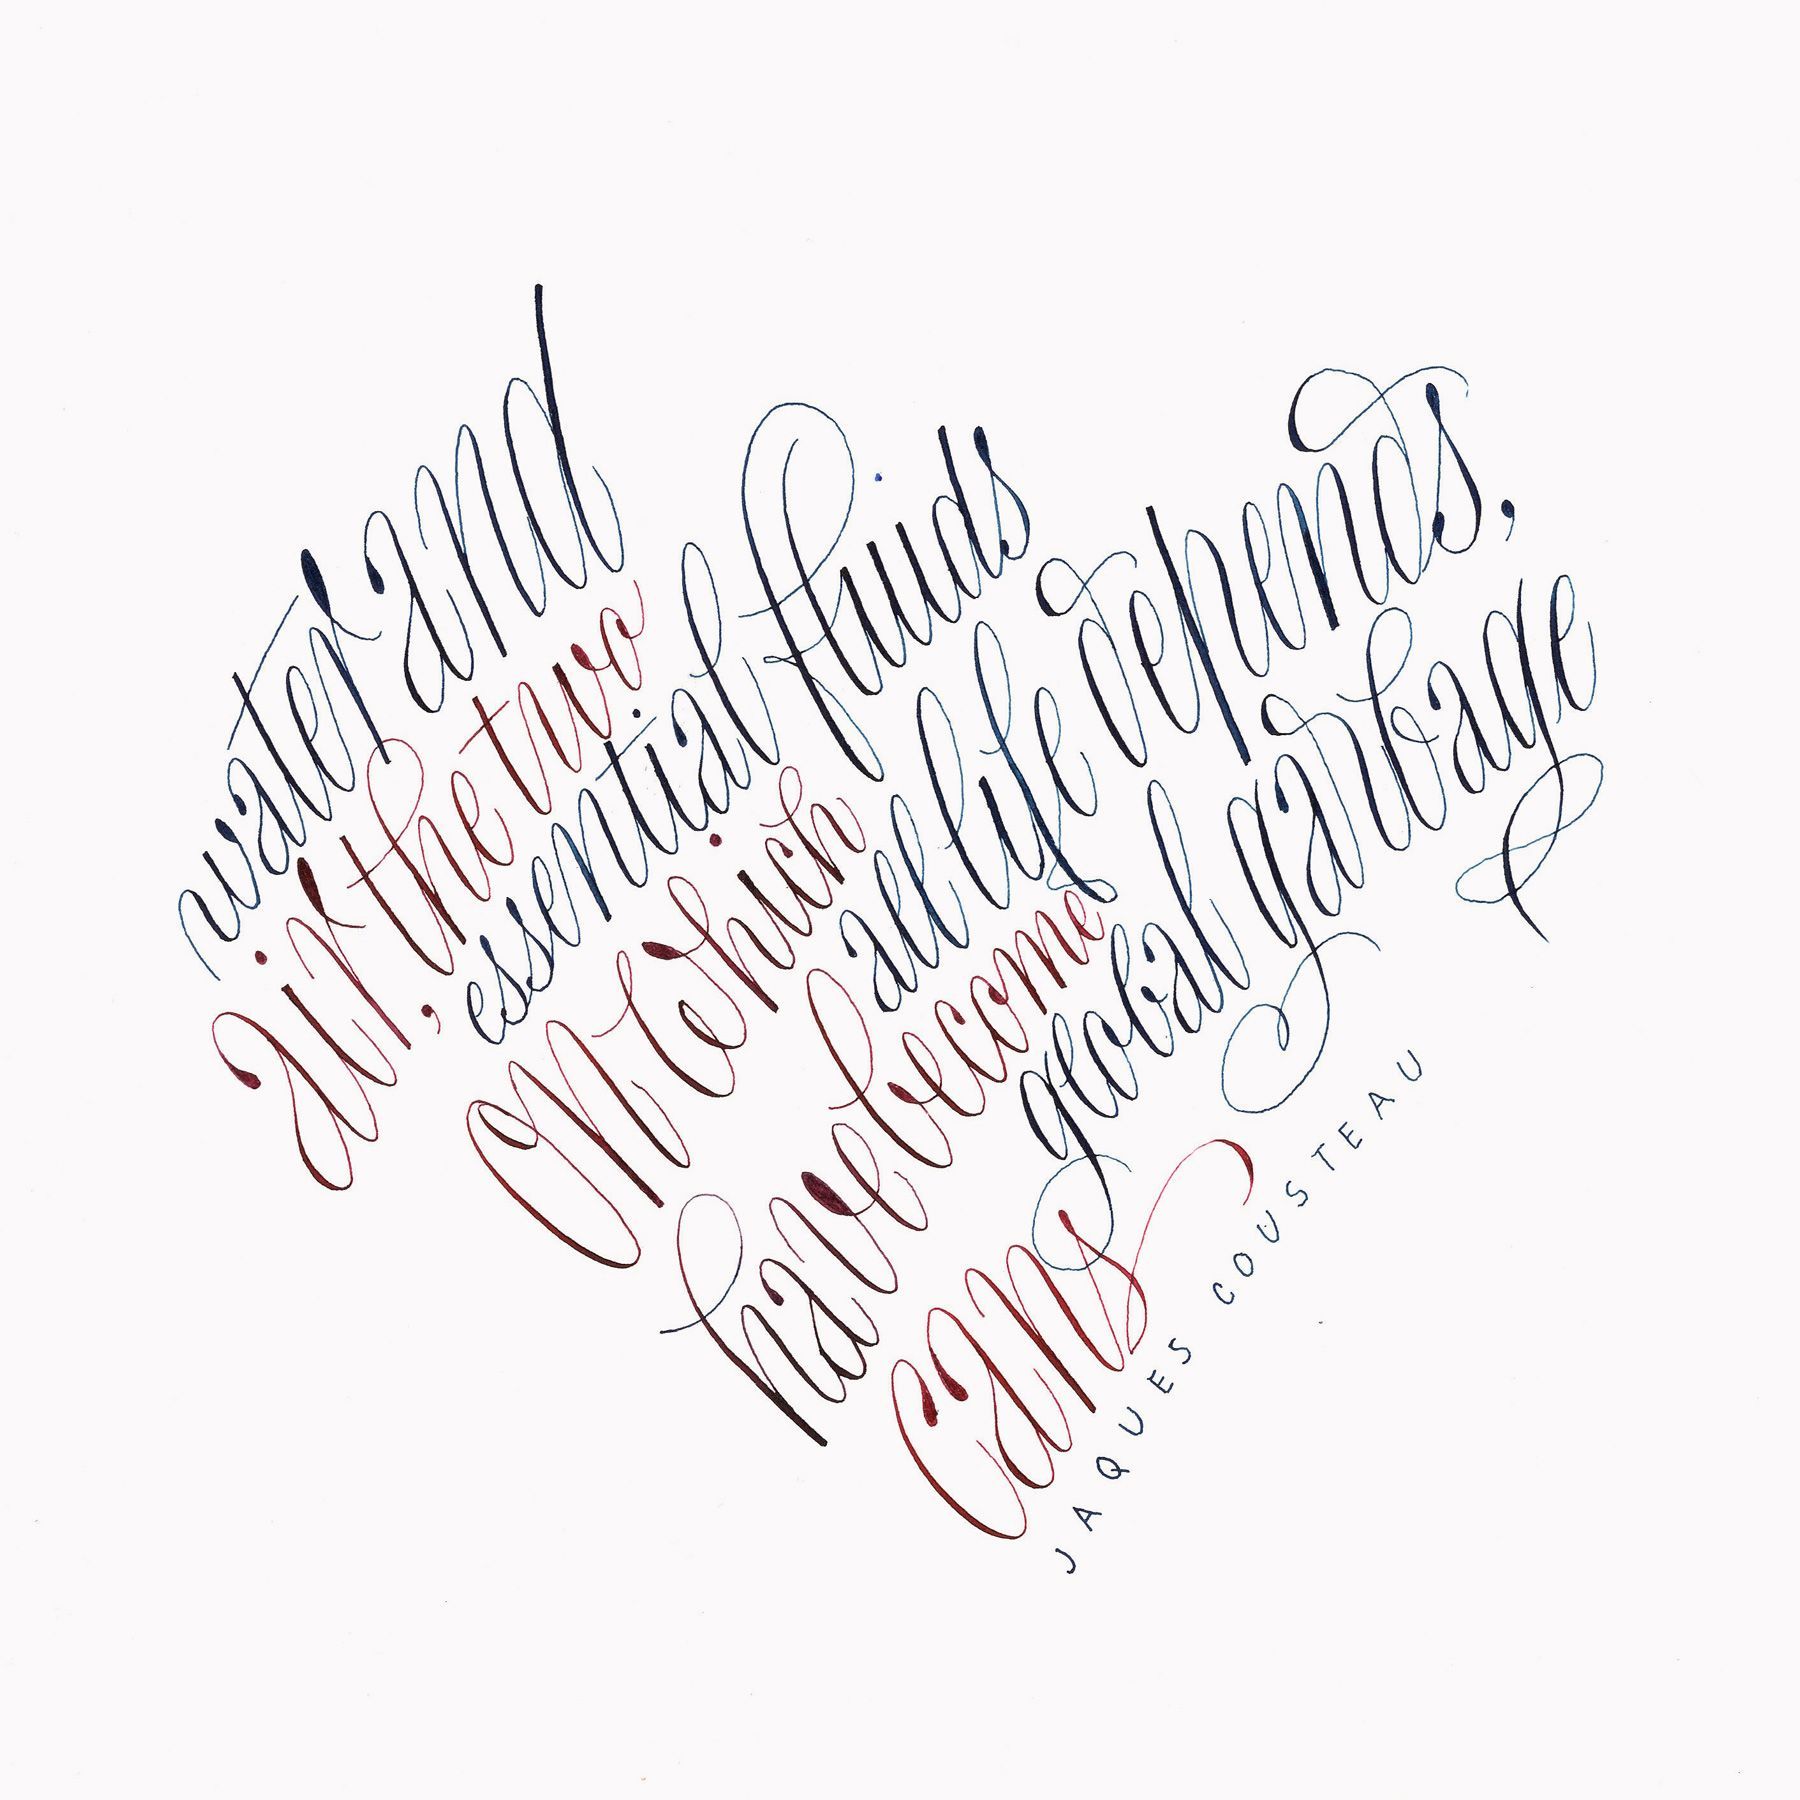 water and
air, the two
essential fluids
on which
all life depends,
have become
global garbage
cans
JAQUES COUSTEAU